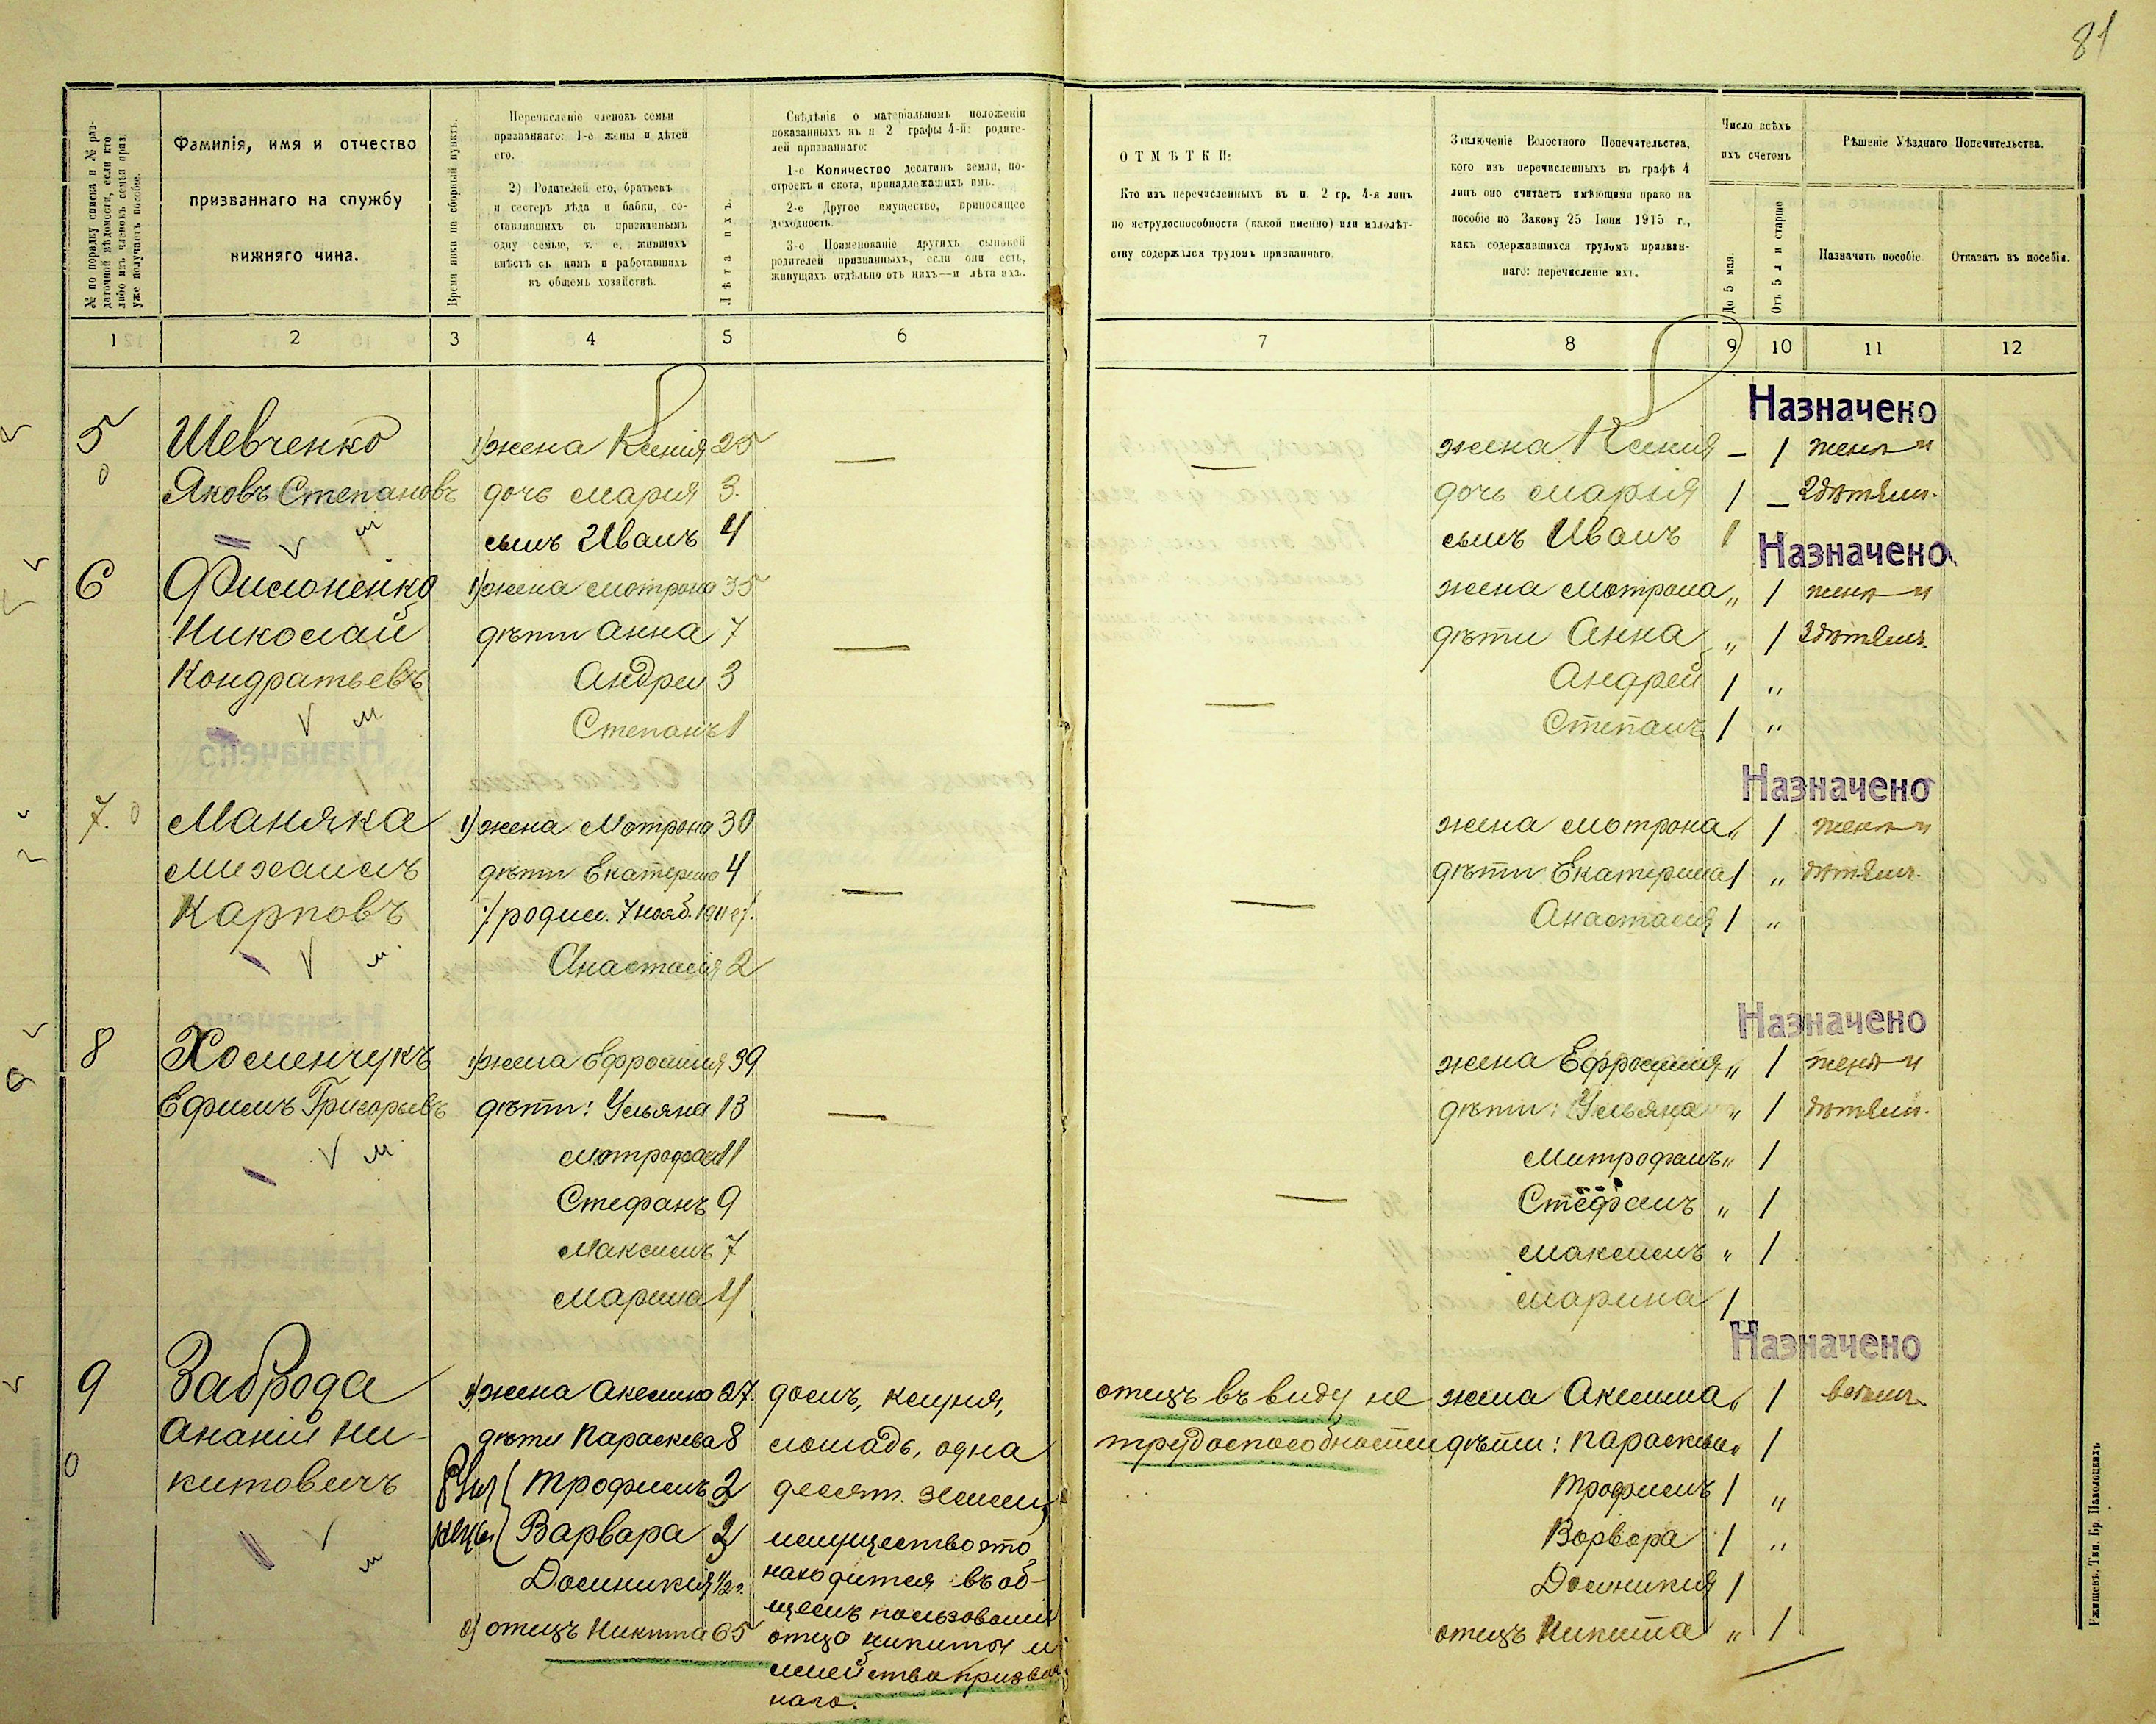 81
№ по порядку списка и № раз-
даточной вѣдомости, если кто
либо изъ членовъ семьи приз.
уже получаетъ пособіе.
Фамилія, имя и отчество
призваннаго на службу
нижняго чина.
Время явки на сборный пунктъ.
Перечисленіе членовъ семьи
призваннаго: 1-е жены и дѣтей
его.
2) Родителей его, братьевъ
и сестеръ дѣда и бабки, со-
ставлявшихъ съ призваннымъ
одну семью, т. е. жившихъ
вмѣстѣ съ нимъ и работавшихъ
въ общемъ хозяйствѣ.
Лѣта ихъ.
Свѣдѣнія о матеріальномъ положеніи
показанныхъ въ п 2 графы 4-й: родите-
лей призваннаго:
1-е Количество десятинъ земли, по-
строекъ и скота, принадлежащихъ имъ.
2-е Другое имущество, приносящее
доходность.
3-е Поименованіе другихъ сыновей
родителей призванныхъ, если они есть,
живущихъ отдѣльно отъ нихъ—и лѣта ихъ.
ОТМѢТКИ:
Кто изъ перечисленныхъ въ п. 2 гр. 4-я лицъ
по нетрудоспособности (какой именно) или малолѣт-
ству содержался трудомъ призваннаго.
Заключеніе Волостного Попечательства,
кого изъ перечисленныхъ въ графѣ 4
лицъ оно считаетъ имѣющими право на
пособіе по Закону 25 Іюня 1915 г.,
какъ содержавшихся трудомъ призван-
наго: перечисленіе ихъ.
Число всѣхъ
ихъ счетомъ
До 5 мая.
Отъ 5 л и старше
Рѣшеніе Уѣзднаго Попечительства.
Назначить пособіе.
Отказать въ пособіи.
1 2 3 4 5 6 7 8 9 10 11 12
Назначено
5 Шевченко 1) жена Ксенія 25 — — жена Ксенія — 1 женѣ и
0 Яковъ Степановъ дочь Марія 3. дочь Марія 1 — 2 дѣтямъ.
сынъ Иванъ 4 сынъ Иванъ 1
Назначено
6 Филоненко 1) жена Мотрона 35 жена Мотрона " 1 женѣ и
Николай дѣти Анна 7 — дѣти Анна " 1 3 дѣтямъ.
Кондратьевъ Андрей 3 — Андрей 1 "
Степанъ 1 Степанъ 1 "
Назначено
7. 0 Маняка 1) жена Мотрона 30 жена Мотрона " 1 женѣ и
Михаилъ дѣти Екатерина 4 — дѣти Екатерина 1 " дѣтямъ.
Карповъ родил. 7 нояб. 1911 г. — Анастасія 1 "
Анастасія 2
Назначено
8 Хоменчукъ 1) жена Ефросинія 39 жена Ефросинія " 1 женѣ и
Ефимъ Григорьевъ дѣти: Ульяна 13 — дѣти: Ульяна " 1 дѣтямъ.
Митрофанъ 11 Митрофанъ " 1
Стефанъ 9 — Стефанъ " 1
Максимъ 7 Максимъ " 1
Марина 4 Марина 1
Назначено
9 Заброда 1) жена Аксинія 27. домъ, клуня, отецъ въ виду не жена Аксинія " 1 всѣмъ
Ананій Ни- дѣти Параскева 8 лошадь, одна трудоспособности дѣти: Параскева " 1
0 китовичъ Трофимъ 2 десят. земли, Трофимъ 1 "
Варвара 2 имущество это Варвара 1 "
Домникія 1/2 г. находится въ об- Домникія 1
щемъ пользованіи
2) отецъ Никита 65 отца Никиты и отецъ Никита " 1
семейства призван-
наго.
Ржищевъ, Тип. Бр. Наволоцкихъ